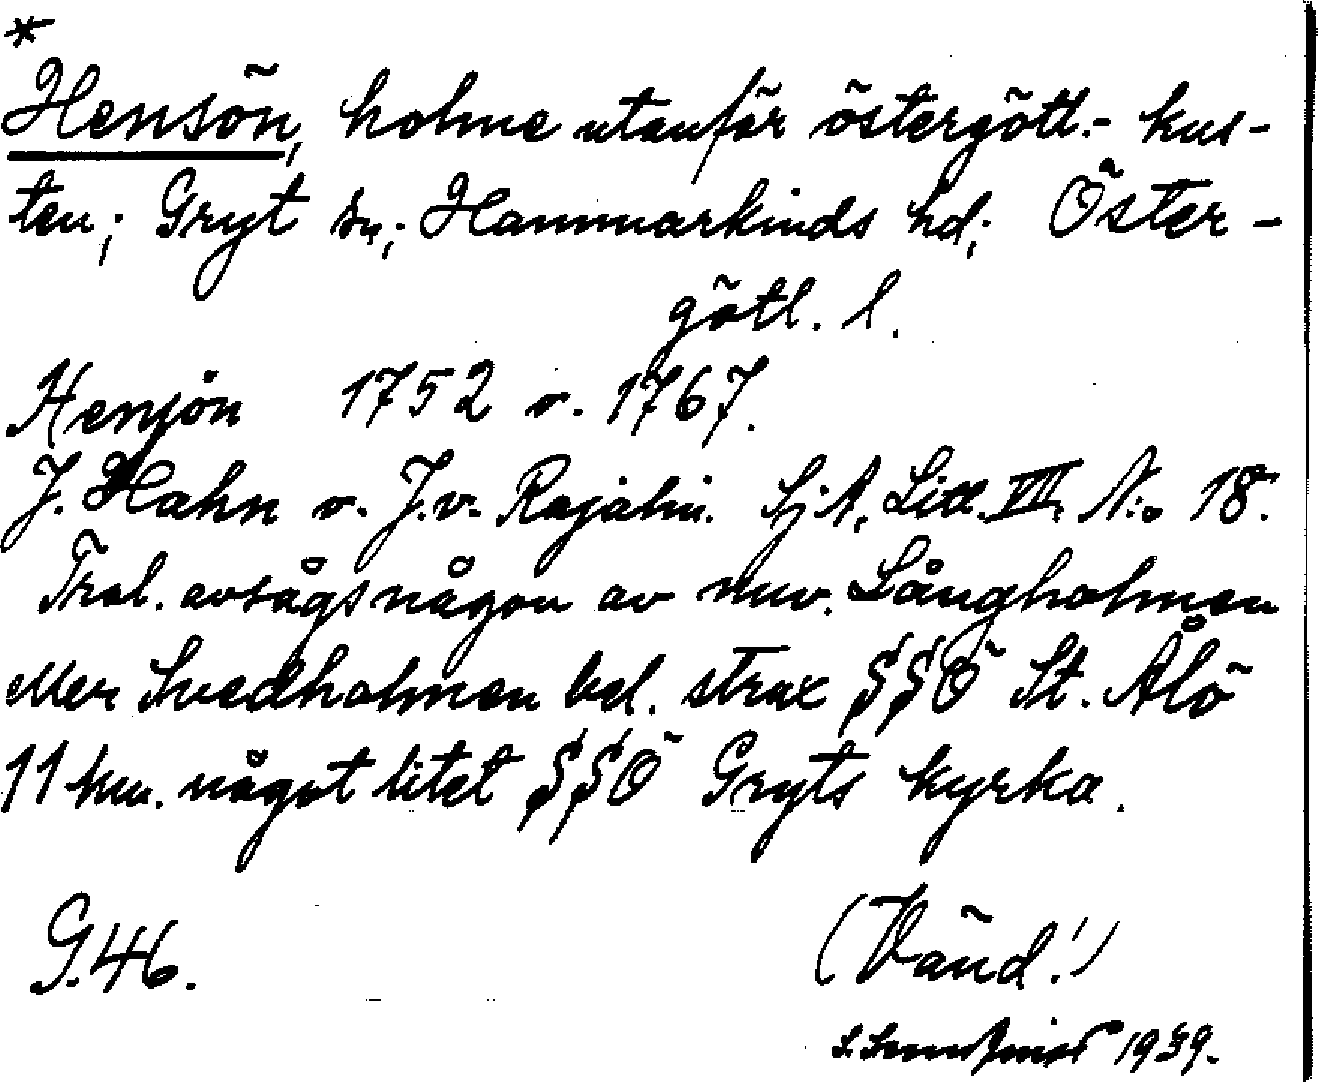 *
Hensön, holme utanför östergötl.- kus-
ten; Gryt sn; Hammarkinds hd; Öster-
götl. l.
Henjön 1752 o. 1767.
J. Hahn o. J.v. Rajalin. Sj.A. Litt. VIII. N:o 18.
Trol. avsågs någon av nuv. Långholmen
eller Svedholmen bel. strax SSÖ St. Ålö
11 km. något litet SSÖ Gryts kyrka.
G.46.
(Vänd!)
1939.